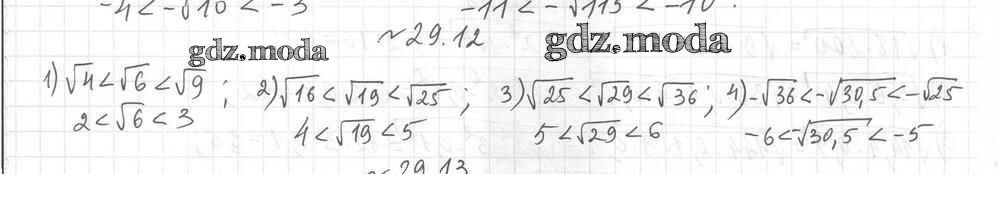 -4 < -√10 < -3    -11 < -√113 < -10.
№ 29.12
gdz.moda    gdz.moda
1) √4 < √6 < √9 ; 2) √16 < √19 < √25 ; 3) √25 < √29 < √36 ; 4) -√36 < -√30,5 < -√25
2 < √6 < 3    4 < √19 < 5    5 < √29 < 6    -6 < -√30,5 < -5
№ 29.13